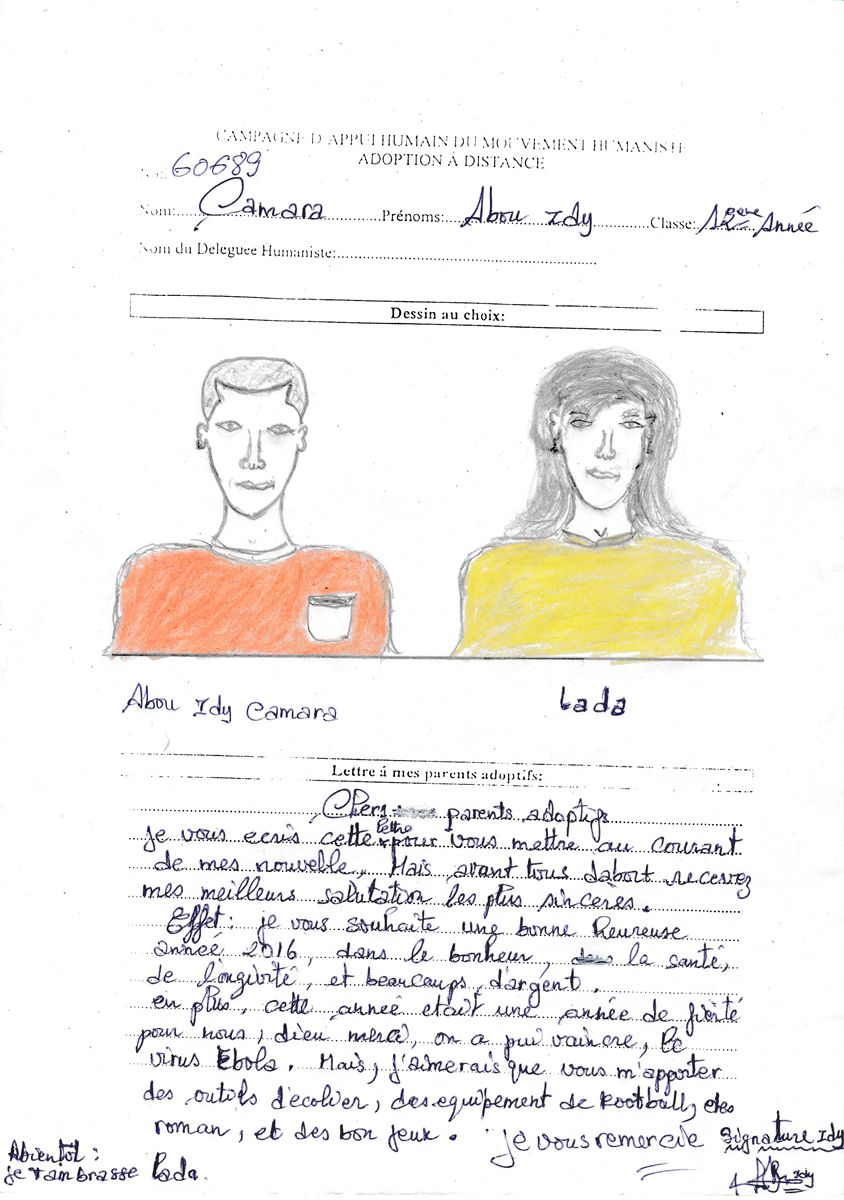 CAMPAGNE D'APPUI HUMAIN DU MOUVEMENT HUMANISTE
ADOPTION À DISTANCE
No: 60689
Nom: Camara Prénoms: Abou Idy Classe: 12ème Année
Nom du Deleguee Humaniste:
Dessin au choix:
Abou Idy Camara
Lada
Lettre á mes parents adoptifs:
Chers parents adoptifs
je vous ecris cette lettre pour vous mettre au courant
de mes nouvelle, Mais avant tous dabort recevez
mes meilleurs salutation les plus sincères.
Effet: je vous souhaite une bonne heureuse
anneé 2016, dans le bonheur, la santé,
de longivité, et beaucaups d'argent.
en plus, cette anneé etait une année de
pour nous, dieu merci, on a pu vaincre, le
virus Ebola. Mais, j'aimerais que vous m'apporter
des outils d'ecolier, des equipement de football, des
roman, et des bon jeux. je vous remercie
Signature Idy
Abientot:
je t'ambrasse Lada.
Idy